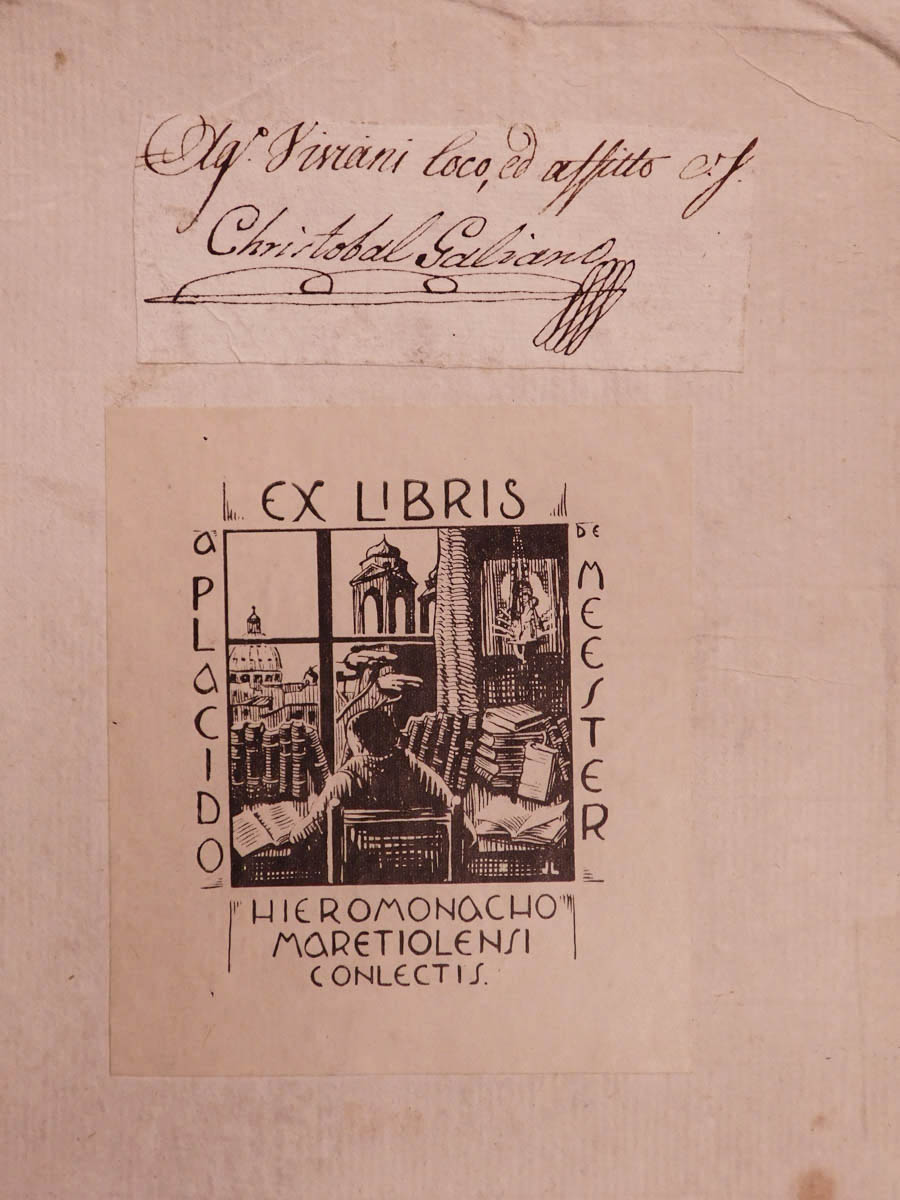 Agº. Viviani loco, ed affitto
Christobal Galiano
EX LIBRIS
A PLACIDO
DE MEESTER
HIEROMONACHO
MARETIOLENSI
CONLECTIS.
JL